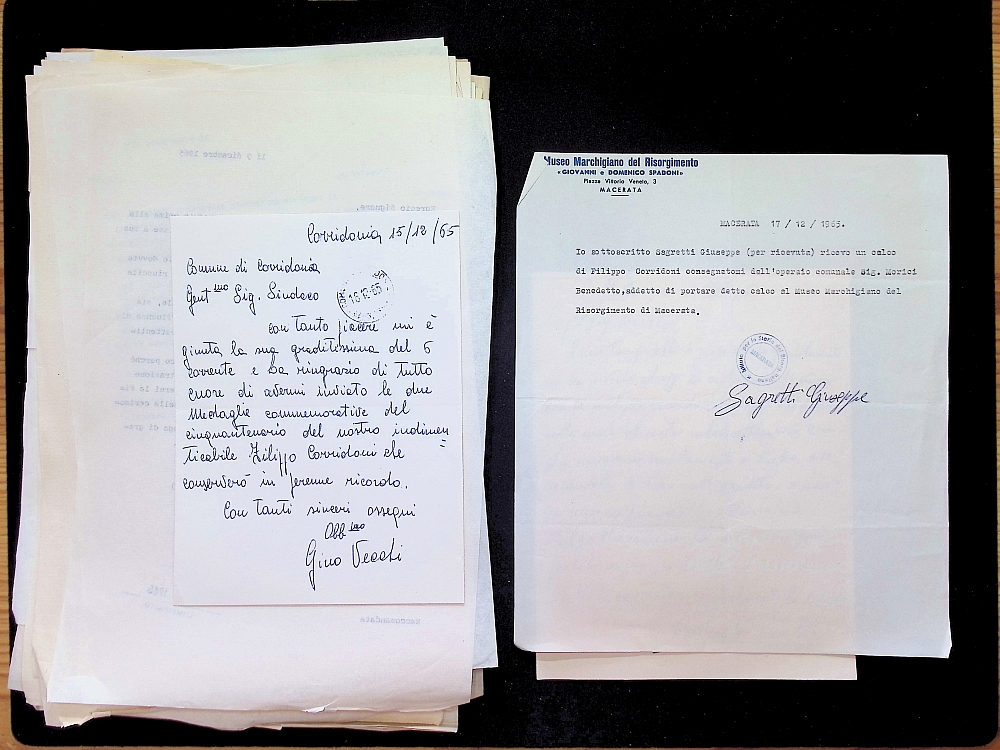 Corridonia 15/12/65
Comune di Corridonia
Gent.mo Sig. Sindaco
16.12.65
con tanto piacere mi è
giunta la sua graditissima del 6
corrente e La ringrazio di tutto
cuore di avermi inviato le due
Medaglie commemorative del
cinquantenario del nostro indimen
ticabile Filippo Corridoni che
conserverò in perenne ricordo.
Con tanti sinceri ossequi
Obb.mo
Gino
11 9 dicembre 1965
Egregio Signore.
Raccomandata
Museo Marchigiano del Risorgimento
«GIOVANNI e DOMENICO SPADONI»
Piazza Vittorio Veneto, 3
MACERATA
MACERATA 17 / 12 / 1965.
Io sottoscritto Sagretti Giuseppe (per ricevuta) ricevo un calco
di Filippo Corridoni consegnatomi dell'operaio comunale Sig. Morici
Benedetto,addetto di portare detto calco al Museo Marchigiano del
Risorgimento di Macerata.
Sagretti Giuseppe